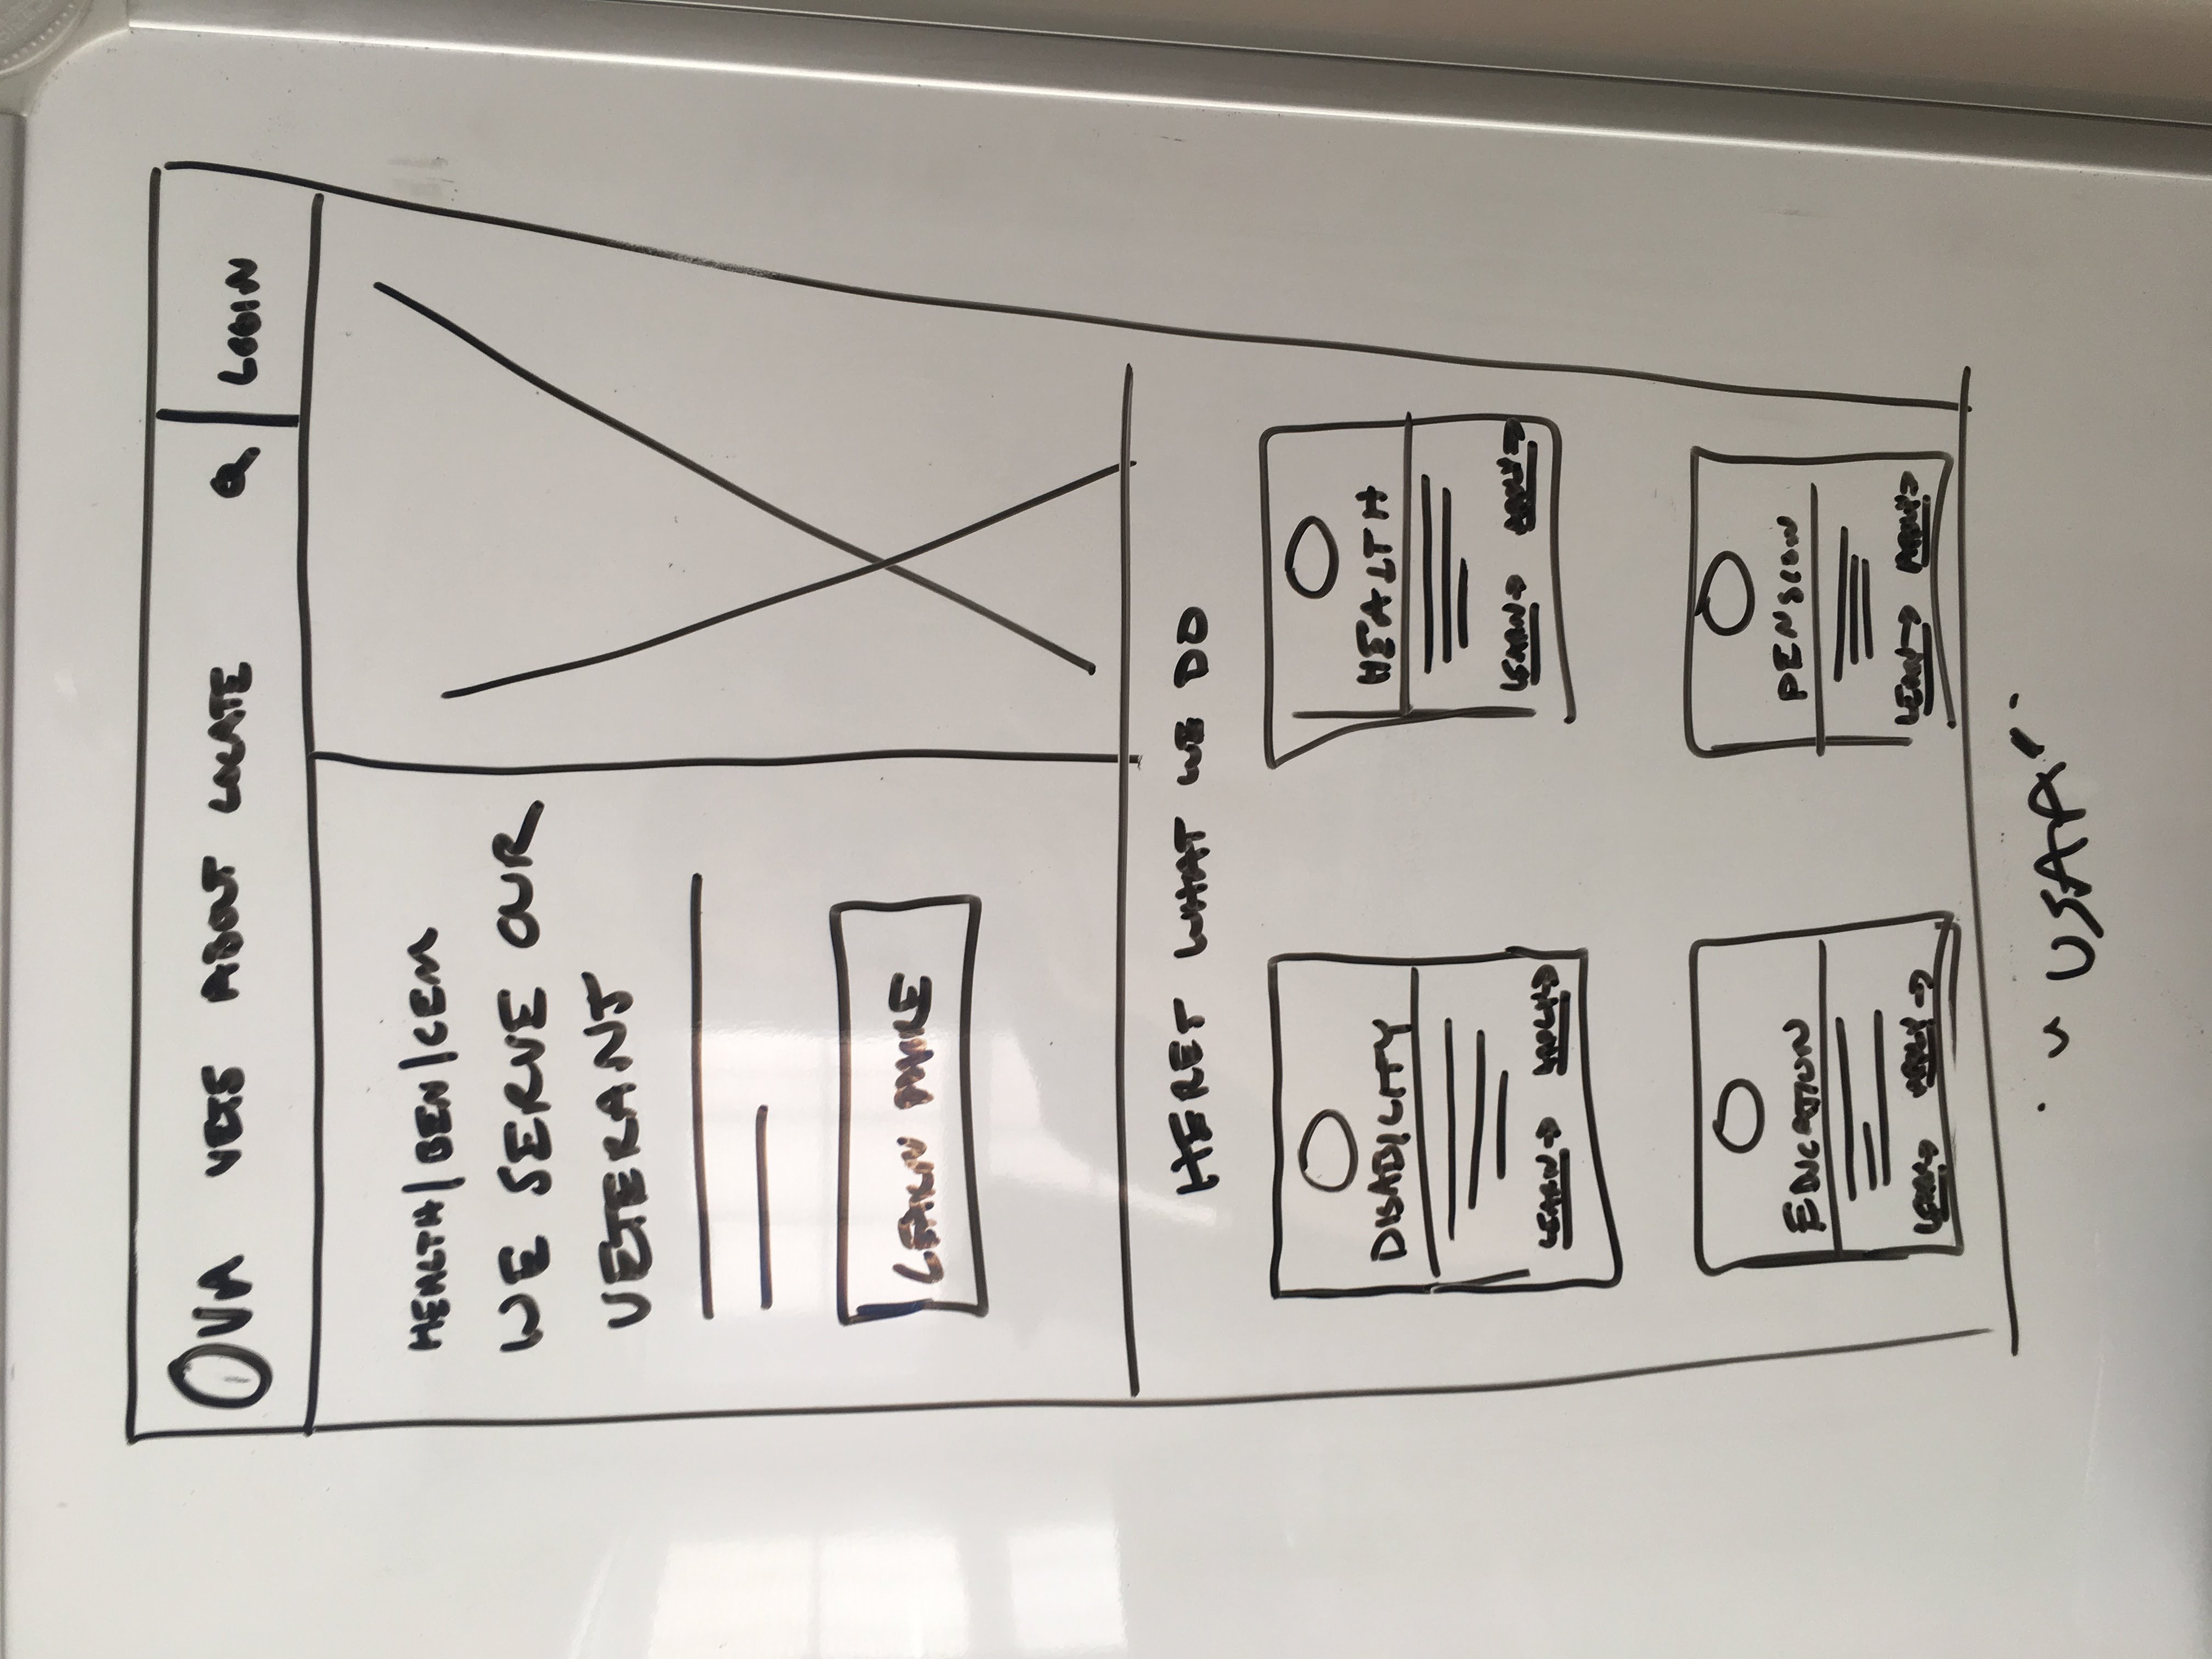 VA VETS ABOUT LOCATE LOGIN
HEALTH/BEN/CEM
WE SERVE OUR
VETERANS
LEARN MORE
HERES WHAT WE DO
DISABILITY
LEARN → APPLY →
HEALTH
LEARN → APPLY →
EDUCATION
LEARN → APPLY →
PENSION
LEARN → APPLY →
"USAA"